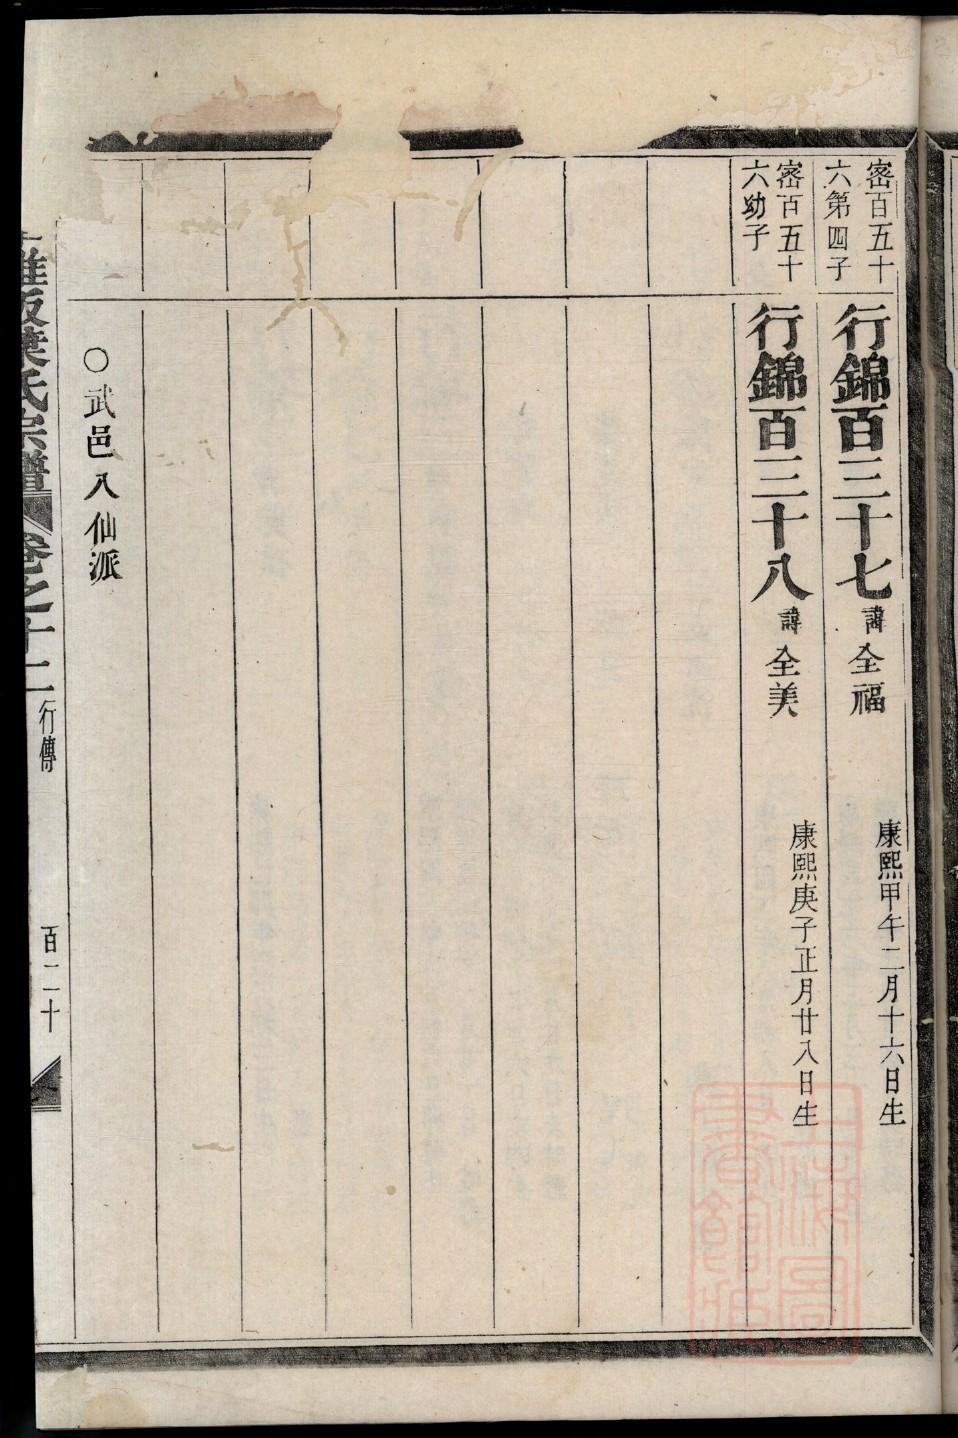 密百五十
六第四子
行錦百三十七 諱全福
康熙甲午二月十六日生
密百五十
六幼子
行錦百三十八 諱全美
康熙庚子正月廿八日生
○武邑八仙派
葉氏宗譜 卷之十二 行傳 百二十
上海圖書館藏